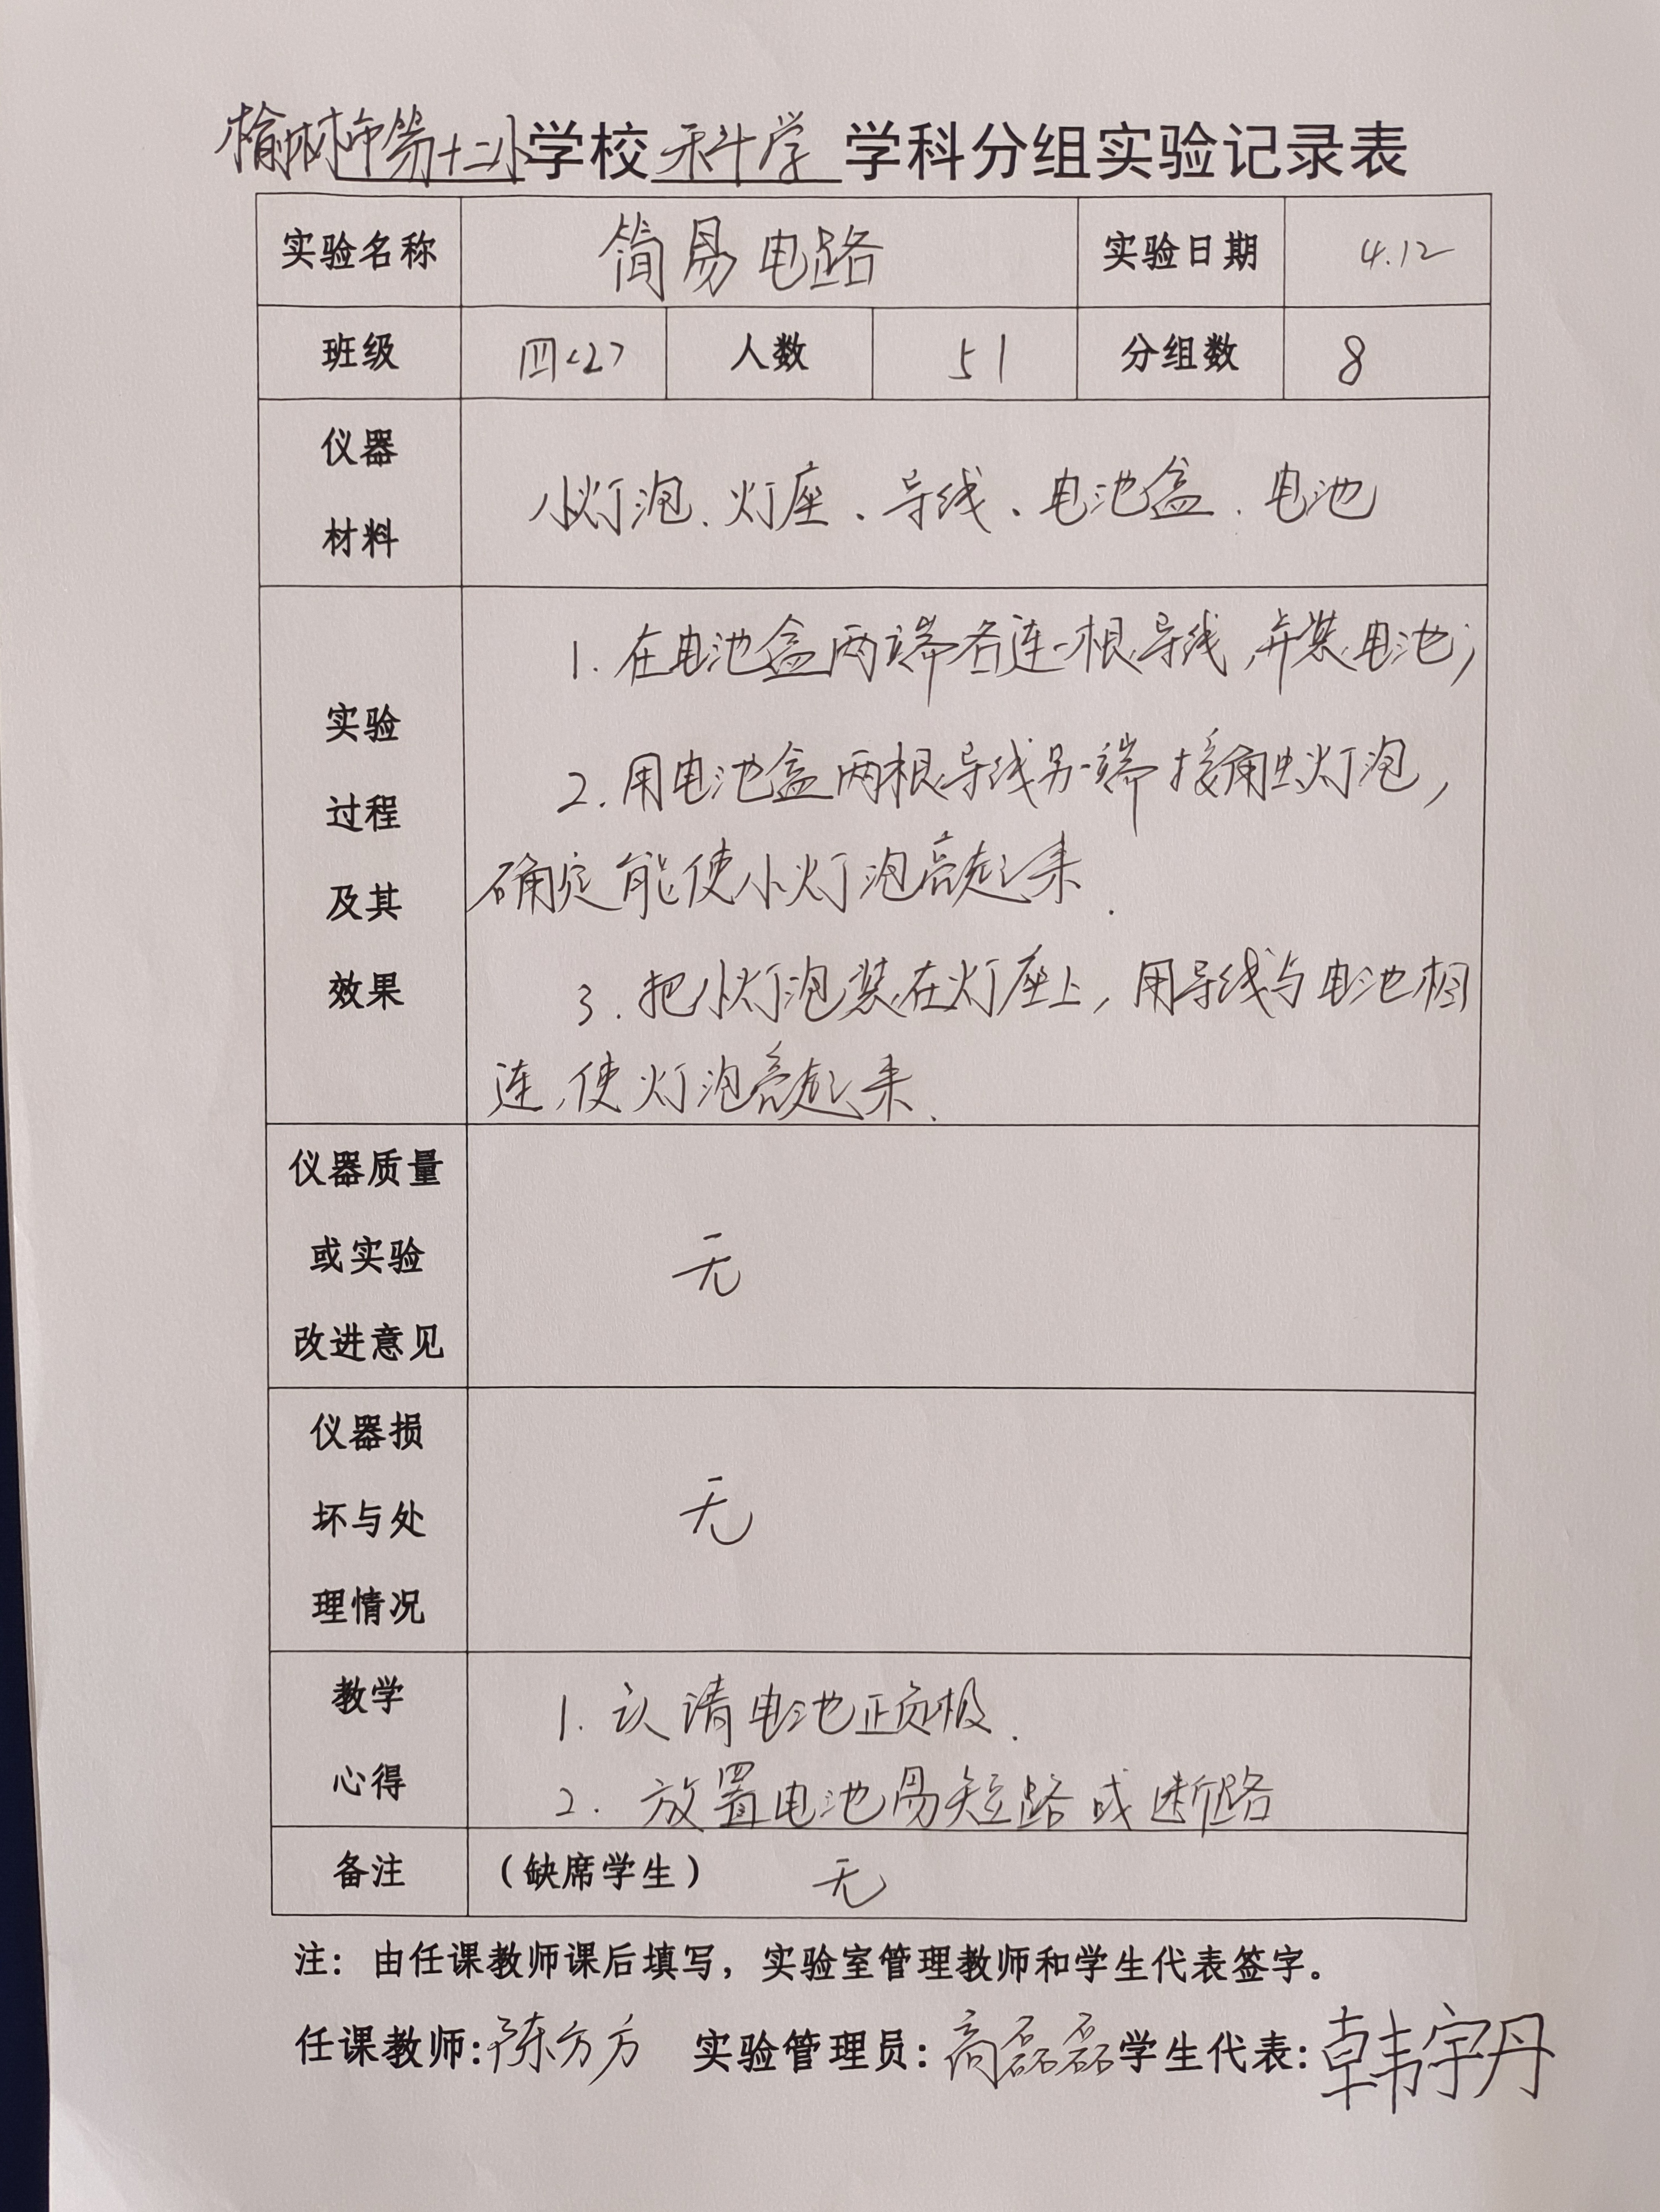 榆林市第十二小学校 科学 学科分组实验记录表
实验名称 简易电路 实验日期 4.12
班级 四<2> 人数 51 分组数 8
仪器
材料
小灯泡、灯座、导线、电池盒、电池
实验
过程
及其
效果
1. 在电池盒两端各连一根导线,并装电池;
2. 用电池盒两根导线另一端接触灯泡,
确定能使小灯泡亮起来.
3. 把小灯泡装在灯座上,用导线与电池相
连,使灯泡亮起来.
仪器质量
或实验
改进意见
无
仪器损
坏与处
理情况
无
教学
心得
1. 认请电池正负极.
2. 放置电池易短路或断路
备注 (缺席学生) 无
注:由任课教师课后填写,实验室管理教师和学生代表签字。
任课教师:陈方方 实验管理员:高磊磊 学生代表:韩宇丹